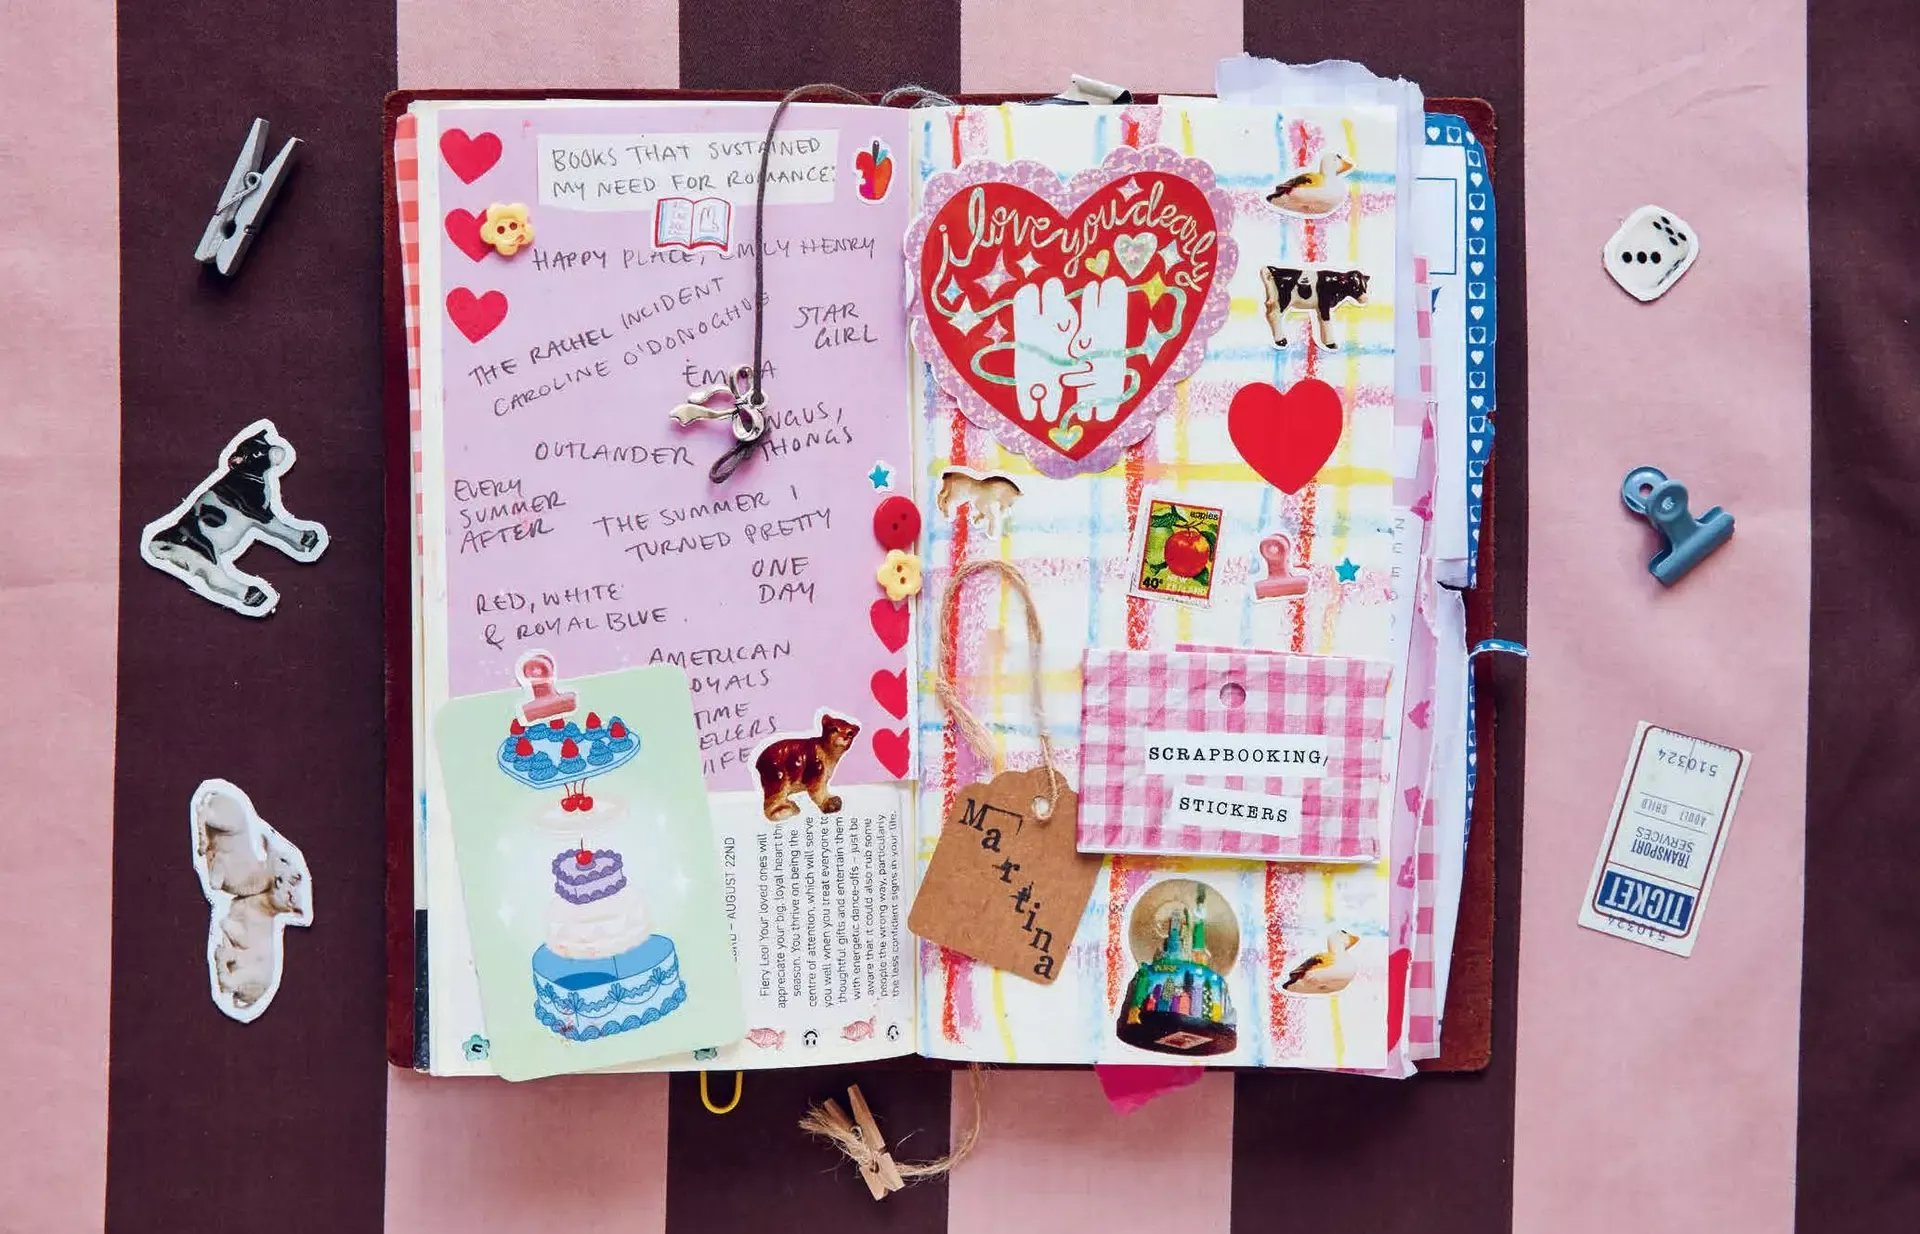 BOOKS THAT SUSTAINED
MY NEED FOR ROMANCE:
HAPPY PLACE, EMILY HENRY
THE RACHEL INCIDENT
CAROLINE O'DONOGHUE
STAR
GIRL
EMMA
NGUS,
THONGS
OUTLANDER
EVERY
SUMMER
AFTER
THE SUMMER I
TURNED PRETTY
ONE
DAY
RED, WHITE
& ROYAL BLUE.
AMERICAN
OYALS
TIME
ELLERS
IFE
– AUGUST 22ND
Fiery Leo! Your loved ones will
appreciate your big, loyal heart thi
season. You thrive on being the
centre of attention, which will serve
you well when you treat everyone to
thoughtful gifts and entertain them
with energetic dance-offs – just be
aware that it could also rub some
people the wrong way, particularly
the less confident signs in your life.
i love you dearly
apples
40c
NEW
ZEALAND
SCRAPBOOKING/
STICKERS
Martina
510324
ADULT CHILD
TRANSPORT
SERVICES
TICKET
510324